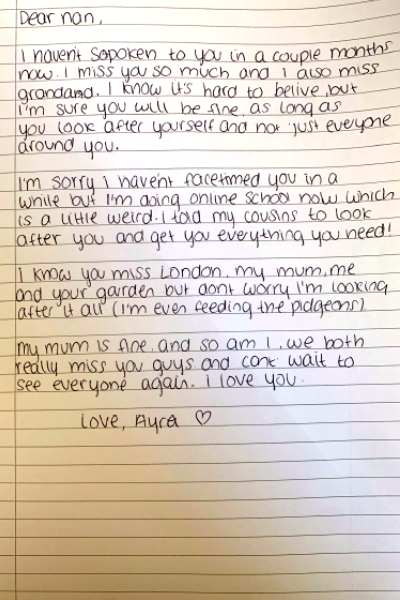 Dear nan,
I havent sopoken to you in a couple months
now. I miss you so much and I also miss
grandand. I know it's hard to belive, but
I'm sure you will be fine as long as
you look after yourself and not just everyone
around you.
I'm sorry I havent facetimed you in a
while but I'm doing online school now which
is a little weird. I told my cousins to look
after you and get you everything you need!
I know you miss London, my mum, me
and your garden but dont worry I'm looking
after it all (I'm even feeding the pidgeons)
my mum is fine and so am I, we both
really miss you guys and cant wait to
see everyone again. i love you.
Love, Ayra ♡